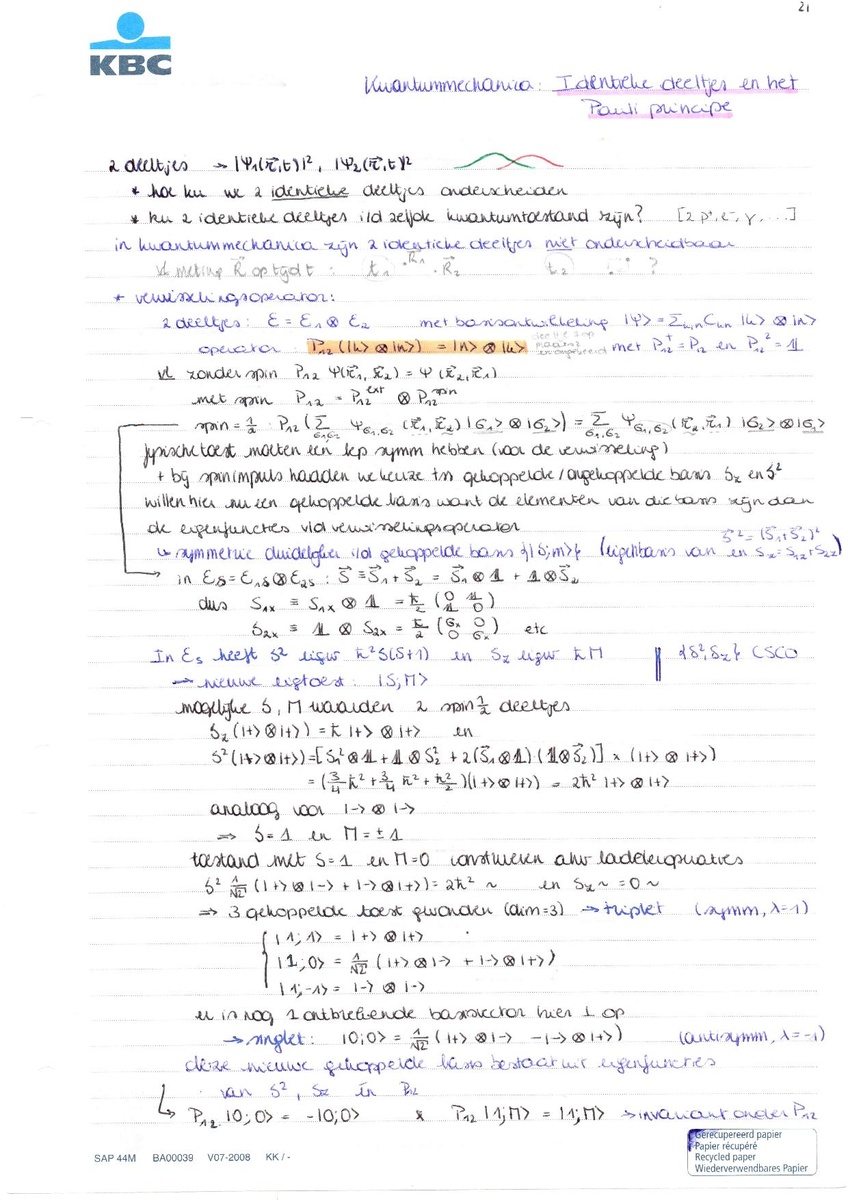 21
KBC
Kwantummechanica: Identieke deeltjes en het
Pauli principe
2 deeltjes → |Ψ₁(r⃗,t)|², |Ψ₂(r⃗,t)|²
* hoe ku we 2 identieke deeltjes onderscheiden
* ku 2 identieke deeltjes i/d zelfde kwantumtoestand zijn? [2 p⁺, e⁻, γ, ...]
in kwantummechanica zijn 2 identieke deeltjes niet onderscheidbaar
vb meting R⃗ op tijd t : t₁ · R⃗₁ · R⃗₂ t₂ ?
* verwisselingsoperator:
2 deeltjes: Ɛ = Ɛ₁ ⊗ Ɛ₂ met basisontwikkeling |Ψ> = Σₖ,ₙ Cₖₙ |k> ⊗ |n>
operator: P₁₂ (|k> ⊗ |n>) = |n> ⊗ |k> deeltje 2 op plaats 1 en omgekeerd met P₁₂† = P₁₂ en P₁₂² = 𝟙
vb zonder spin P₁₂ Ψ(r⃗₁, r⃗₂) = Ψ(r⃗₂, r⃗₁)
met spin P₁₂ = P₁₂^ext ⊗ P₁₂^spin
spin = 1/2 : P₁₂ (Σ_σ₁σ₂ Ψ_σ₁,σ₂ (r⃗₁, r⃗₂) |σ₁> ⊗ |σ₂>) = Σ_σ₁,σ₂ Ψ_σ₁,σ₂ (r⃗₂, r⃗₁) |σ₂> ⊗ |σ₁>
fysische toest moeten een bep symm hebben (voor de verwisseling)
+ bij spinimpuls hadden we keuze tss gekoppelde/ongekoppelde basis Sz en S²
willen hier nu een gekoppelde basis want de elementen van die basis zijn dan
de eigenfuncties v/d verwisselingsoperator
↳ symmetrie duidelijker i/d gekoppelde basis {|S;m>} (eigenbasis van S⃗² = (S⃗₁+S⃗₂)² en Sz = S₁z + S₂z)
in Ɛs = Ɛ₁s ⊗ Ɛ₂s : S⃗ ≡ S⃗₁ + S⃗₂ = S⃗₁ ⊗ 𝟙 + 𝟙 ⊗ S⃗₂
dus S₁x ≡ S₁x ⊗ 𝟙 = ħ/2 (0 𝟙 𝟙 0)
S₂x ≡ 𝟙 ⊗ S₂x = ħ/2 (σx 0 0 σx) etc
In Ɛs heeft S² eigw ħ²S(S+1) en Sz eigw ħM {S², Sz} CSCO
→ nieuwe eigtoest: |S;M>
mogelijke S, M waarden 2 spin 1/2 deeltjes
Sz (|+> ⊗ |+>) = ħ |+> ⊗ |+> en
S² (|+> ⊗ |+>) = [S₁² ⊗ 𝟙 + 𝟙 ⊗ S₂² + 2(S⃗₁ ⊗ 𝟙) (𝟙 ⊗ S⃗₂)] × (|+> ⊗ |+>)
= (3/4 ħ² + 3/4 ħ² + ħ²/2)(|+> ⊗ |+>) = 2ħ² |+> ⊗ |+>
analoog voor |-> ⊗ |->
⇒ S = 1 en M = ±1
toestand met S = 1 en M = 0 construeren ahv ladderoperatoren
S² 1/√2 (|+> ⊗ |-> + |-> ⊗ |+>) = 2ħ² ~ en Sz ~ = 0 ~
⇒ 3 gekoppelde toest gevonden (dim = 3) → triplet (symm, λ=1)
|1;1> = |+> ⊗ |+>
|1;0> = 1/√2 (|+> ⊗ |-> + |-> ⊗ |+>)
|1;-1> = |-> ⊗ |->
er is nog 1 ontbrekende basisvector hier ⊥ op
→ singlet: |0;0> = 1/√2 (|+> ⊗ |-> - |-> ⊗ |+>) (antisymm, λ=-1)
deze nieuwe gekoppelde basis bestaat uit eigenfuncties
van S², Sz en P₁₂
↳ P₁₂ |0;0> = -|0;0> & P₁₂ |1;M> = |1;M> → invariant onder P₁₂
Gerecupereerd papier
Papier récupéré
Recycled paper
Wiederverwendbares Papier
SAP 44M BA00039 V07-2008 KK / -